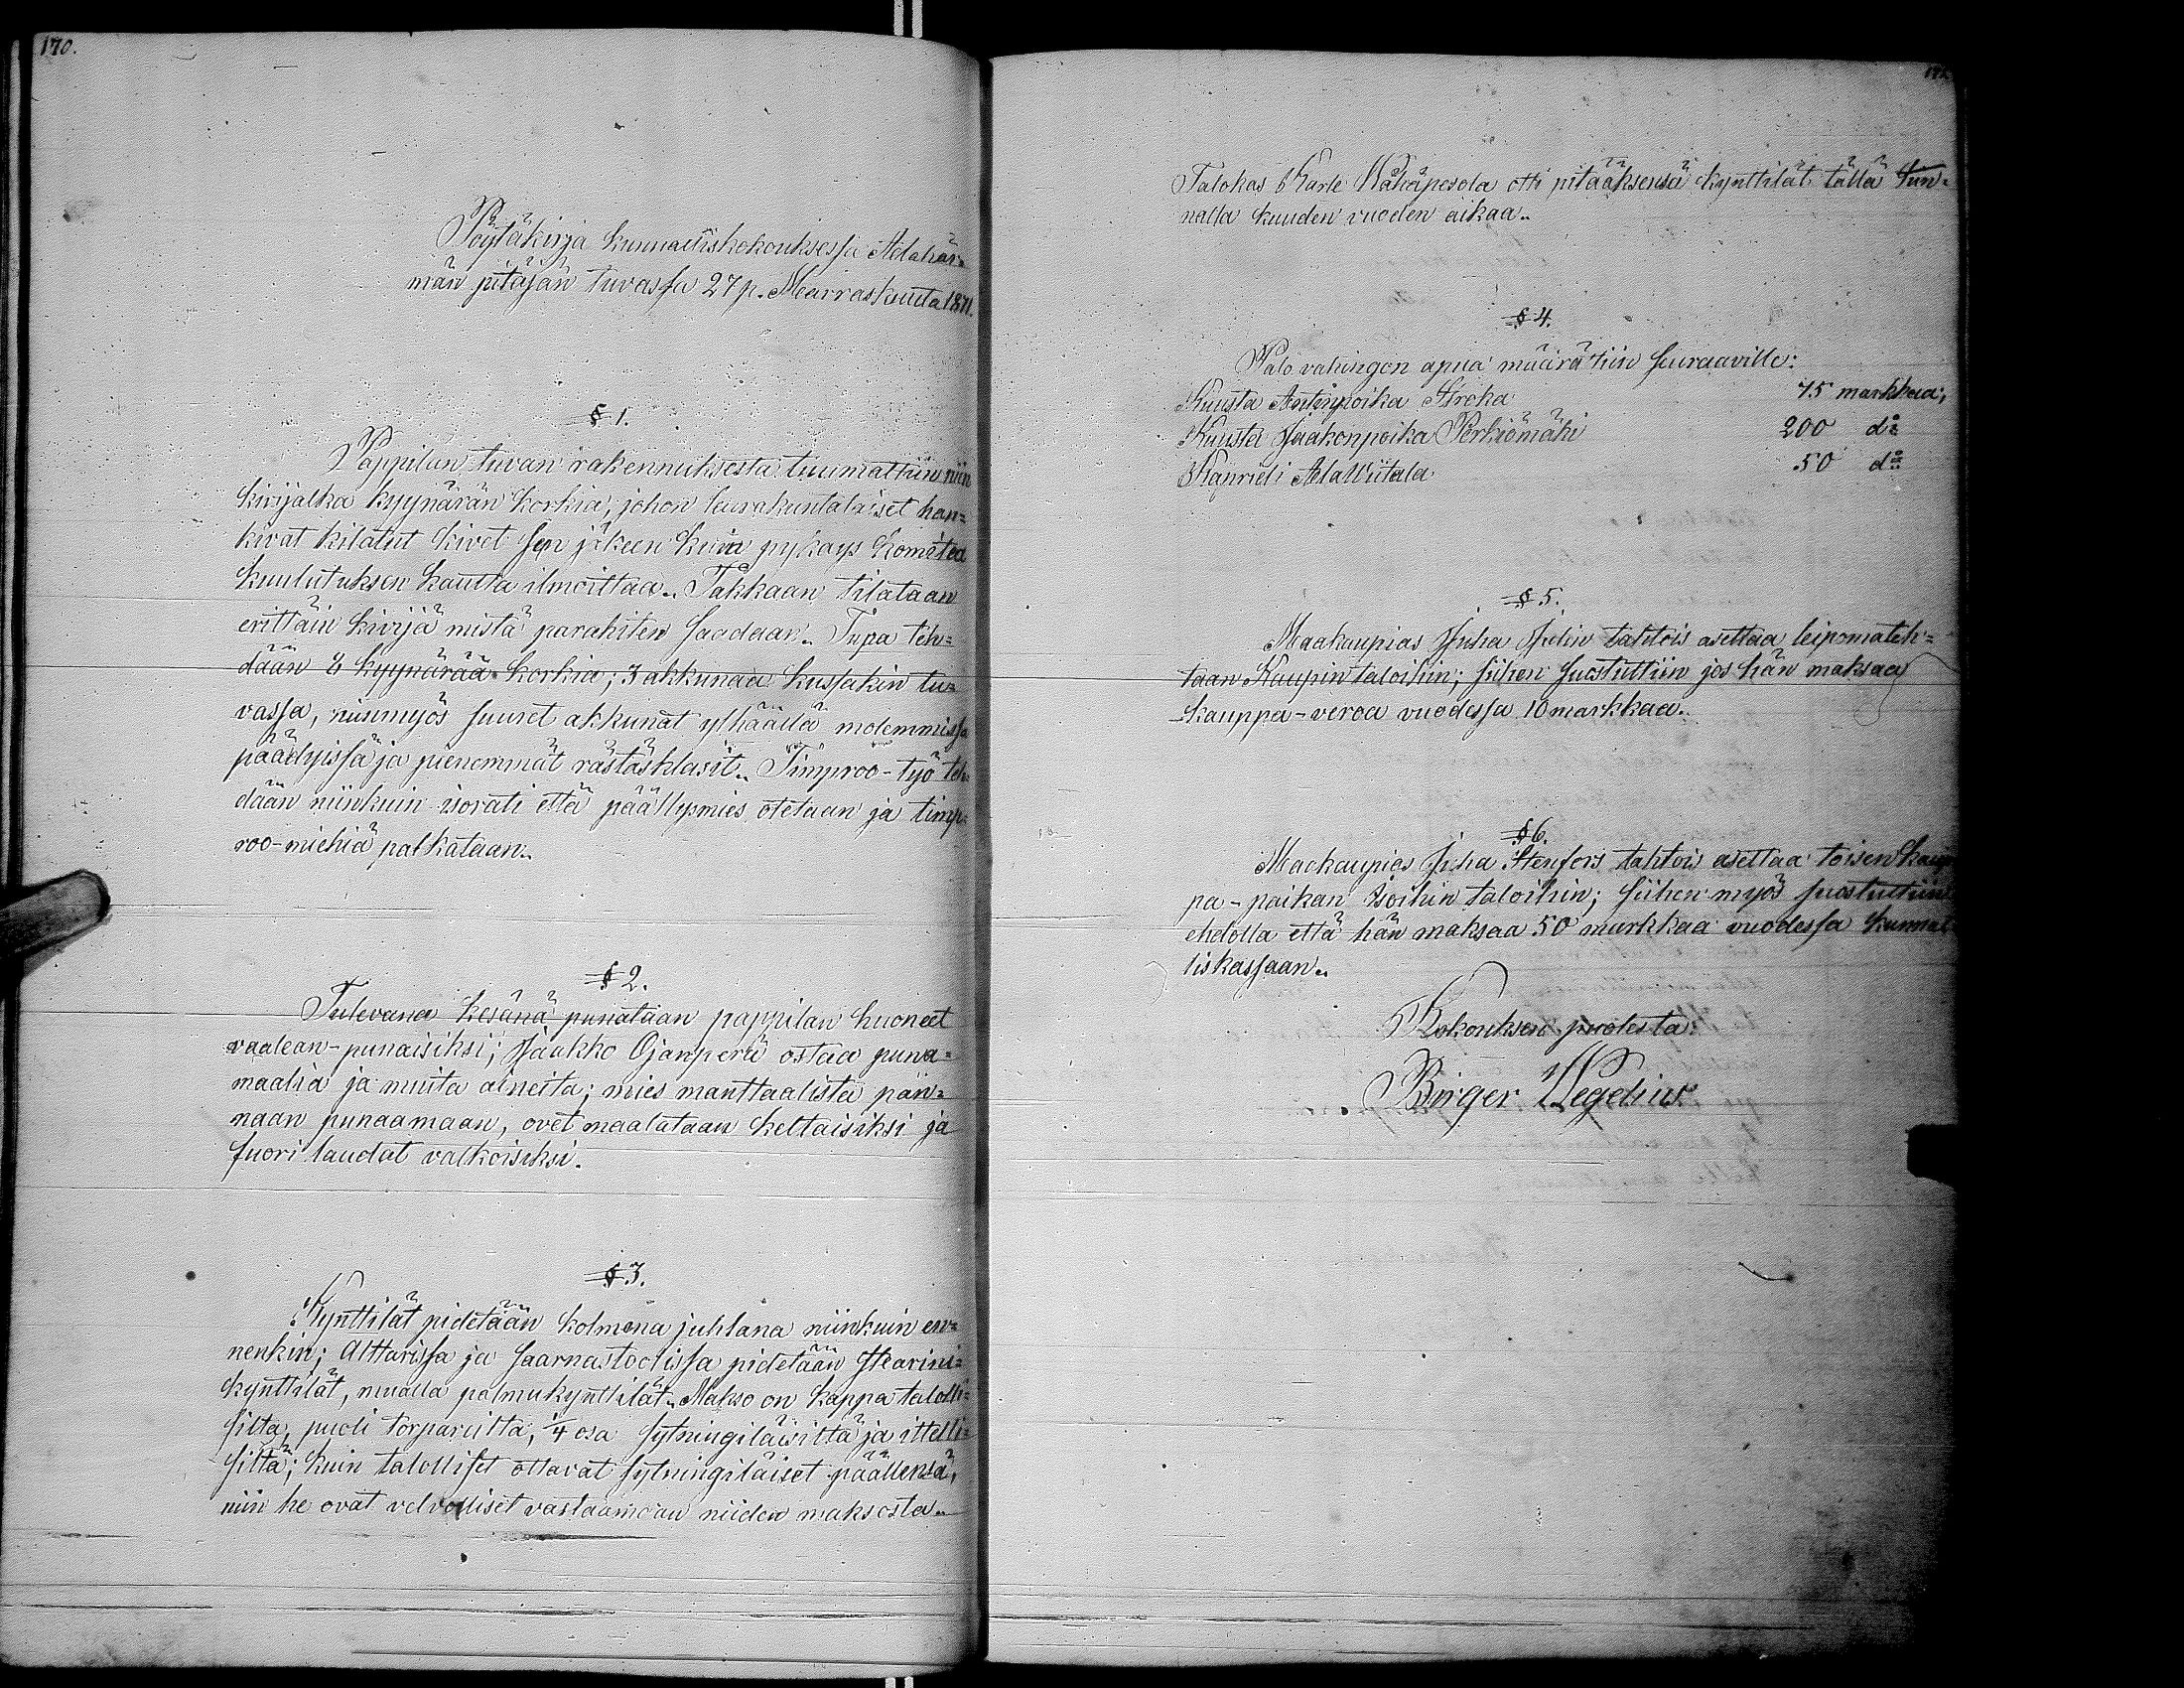 170.
Pöytäkirja kunnalliskokouksessa Alahär=
män pitäjän tuvassa 27 p. Marraskuuta 1871.
§ 1.
Pappilan tuvan rakennuksesta tuumattiin niin
kivijalka kyynärän korkia, johon seurakuntalaiset han=
kivat kilatut kivet sen jäkeen kuin pykäys komitea
kuulutuksen kautta ilmoittaa.. Takkaan tilataan
erittäin kiviä mistä parahiten saadaan.. Tupa teh=
dään 8 kyynärää korkia; 3 akkunaa kussakin tu=
vassa, niinmyös suuret akkunat ylhäällä molemmissa
päädyissä ja pienemmät rästäsklasit.. Timproo-työ teh=
dään niinkuin isorati että päällysmies otetaan ja timp=
roo-miehiä palkataan..
§ 2.
Tulevana kesänä punataan pappilan huoneet
vaalean-punaisiksi; Jaakko Ojanperä ostaa puna=
maalia ja muita aineita; mies manttaalista pan=
naan punaamaan, ovet maalataan keltaisiksi ja
fuori laudat valkoisiksi.
§ 3.
Kynttilät pidetään kolmena juhlana niinkuin en=
nenkin; Alttarissa ja saarnastoolissa pidetään stearini=
kynttilät, muualla palmukynttilät.. Makso on kappa talolli=
silta, puoli torpareilta, 1/4 osa sytningiläisiltä ja ittelli=
siltä; kuin talolliset ottavat sytningiläiset päällensä,
niin he ovat velvolliset vastaamaan niiden maksosta..
Talokas Karle Wähäpesola otti pitääksensä kynttilät tällä tun=
nalla kuuden vuoden aikaa..
§ 4.
Palo vahingon apua määrättiin seuraaville:
Kuusta Antinpoika Stroka 75 markkaa,
Kuusta Jaakonpoika Perkiömäki 200 do
Kanrieli AlaWiitala 50 do
§ 5.
Maakaupias Juha Julin tahtois asettaa leipomateh=
taan Kaupin taloihin; siihen suostuttiin jos hän maksaa
kauppa-veroa vuodessa 10 markkaa..
§ 6.
Maakaupias Juha Stenfors tahtois asettaa toisen kaup
pa-paikan Isoihin taloihin; siihen myös suostuttiin
ehdolla että hän maksaa 50 markkaa vuodessa kunnal
liskassaan..
Kokouksen puolesta:
Birger Wegelius